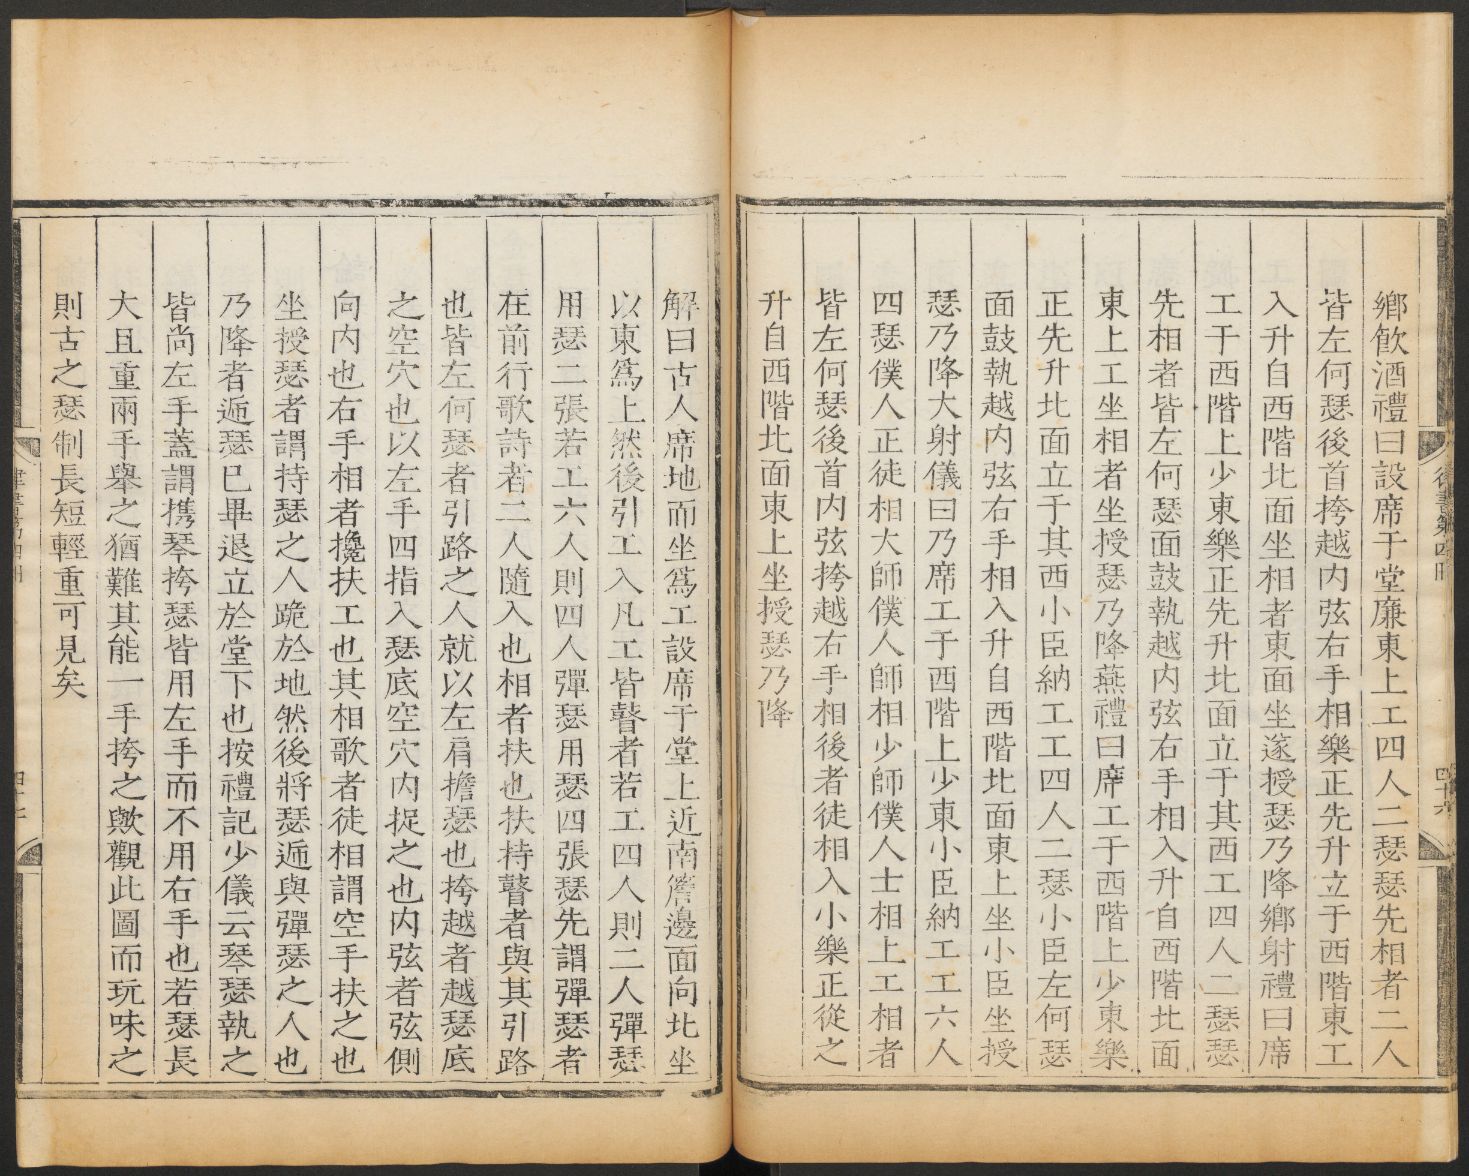 鄉飲酒禮曰設席于堂廉東上工四人二瑟瑟先相者二人
皆左何瑟後首挎越内弦右手相樂正先升立于西階東工
入升自西階北面坐相者東面坐遂授瑟乃降鄉射禮曰席
工于西階上少東樂正先升北面立于其西工四人二瑟瑟
先相者皆左何瑟面鼓執越内弦右手相入升自西階北面
東上工坐相者坐授瑟乃降燕禮曰席工于西階上少東樂
正先升北面立于其西小臣納工工四人二瑟小臣左何瑟
面鼓執越内弦右手相入升自西階北面東上坐小臣坐授
瑟乃降大射儀曰乃席工于西階上少東小臣納工工六人
四瑟僕人正徒相大師僕人師相少師僕人士相上工相者
皆左何瑟後首内弦挎越右手相後者徒相入小樂正從之
升自西階北面東上坐授瑟乃降
四十六
解曰古人席地而坐爲工設席于堂上近南簷邊面向北坐
以東爲上然後引工入凡工皆瞽者若工四人則二人彈瑟
用瑟二張若工六人則四人彈瑟用瑟四張瑟先謂彈瑟者
在前行歌詩者二人隨入也相者扶也扶持瞽者與其引路
也皆左何瑟者引路之人就以左肩擔瑟也挎越者越瑟底
之空穴也以左手四指入瑟底空穴内捉之也内弦者弦側
向内也右手相者攙扶工也其相歌者徒相謂空手扶之也
坐授瑟者謂持瑟之人跪於地然後將瑟遞與彈瑟之人也
乃降者遞瑟已畢退立於堂下也按禮記少儀云琴瑟執之
皆尚左手蓋謂携琴挎瑟皆用左手而不用右手也若瑟長
大且重兩手舉之猶難其能一手挎之歟觀此圖而玩味之
則古之瑟制長短輕重可見矣